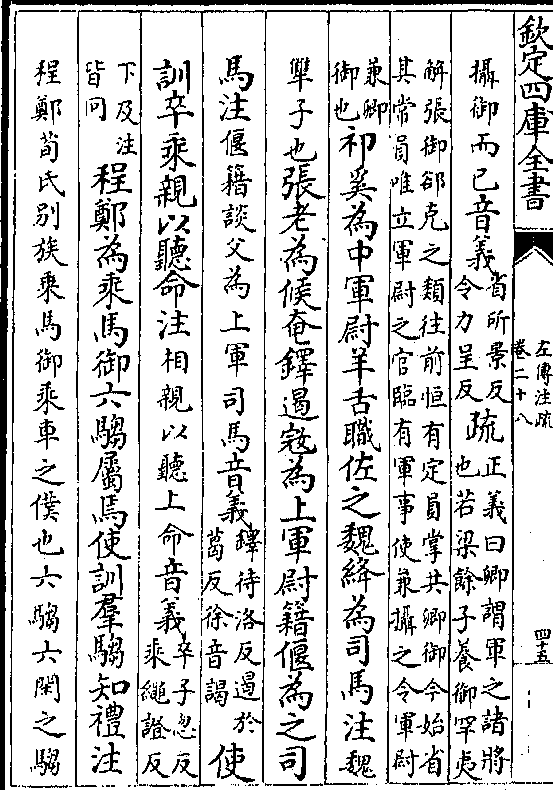 欽定四庫全書
左傳注疏
卷二十八
四十五
攝御而已音義省所景反
令力呈反疏正義曰卿謂軍之諸將
也若梁餘子養御罕夷
解張御郤克之類往前恒有定員掌共卿御今始省
其常員唯立軍尉之官臨有軍事使兼攝之令軍尉
兼卿
御也祁奚為中軍尉羊舌職佐之魏絳為司馬注魏
犨子也張老為候奄鐸遏寇為上軍尉籍偃為之司
馬注偃籍談父為上軍司馬音義鐸待洛反遏於
葛反徐音謁使
訓卒乘親以聽命注相親以聽上命音義卒子忽反
乘繩證反
下及注
皆同程鄭為乘馬御六騶屬馬使訓羣騶知禮注
程鄭荀氏别族乘馬御乘車之僕也六騶六閑之騶